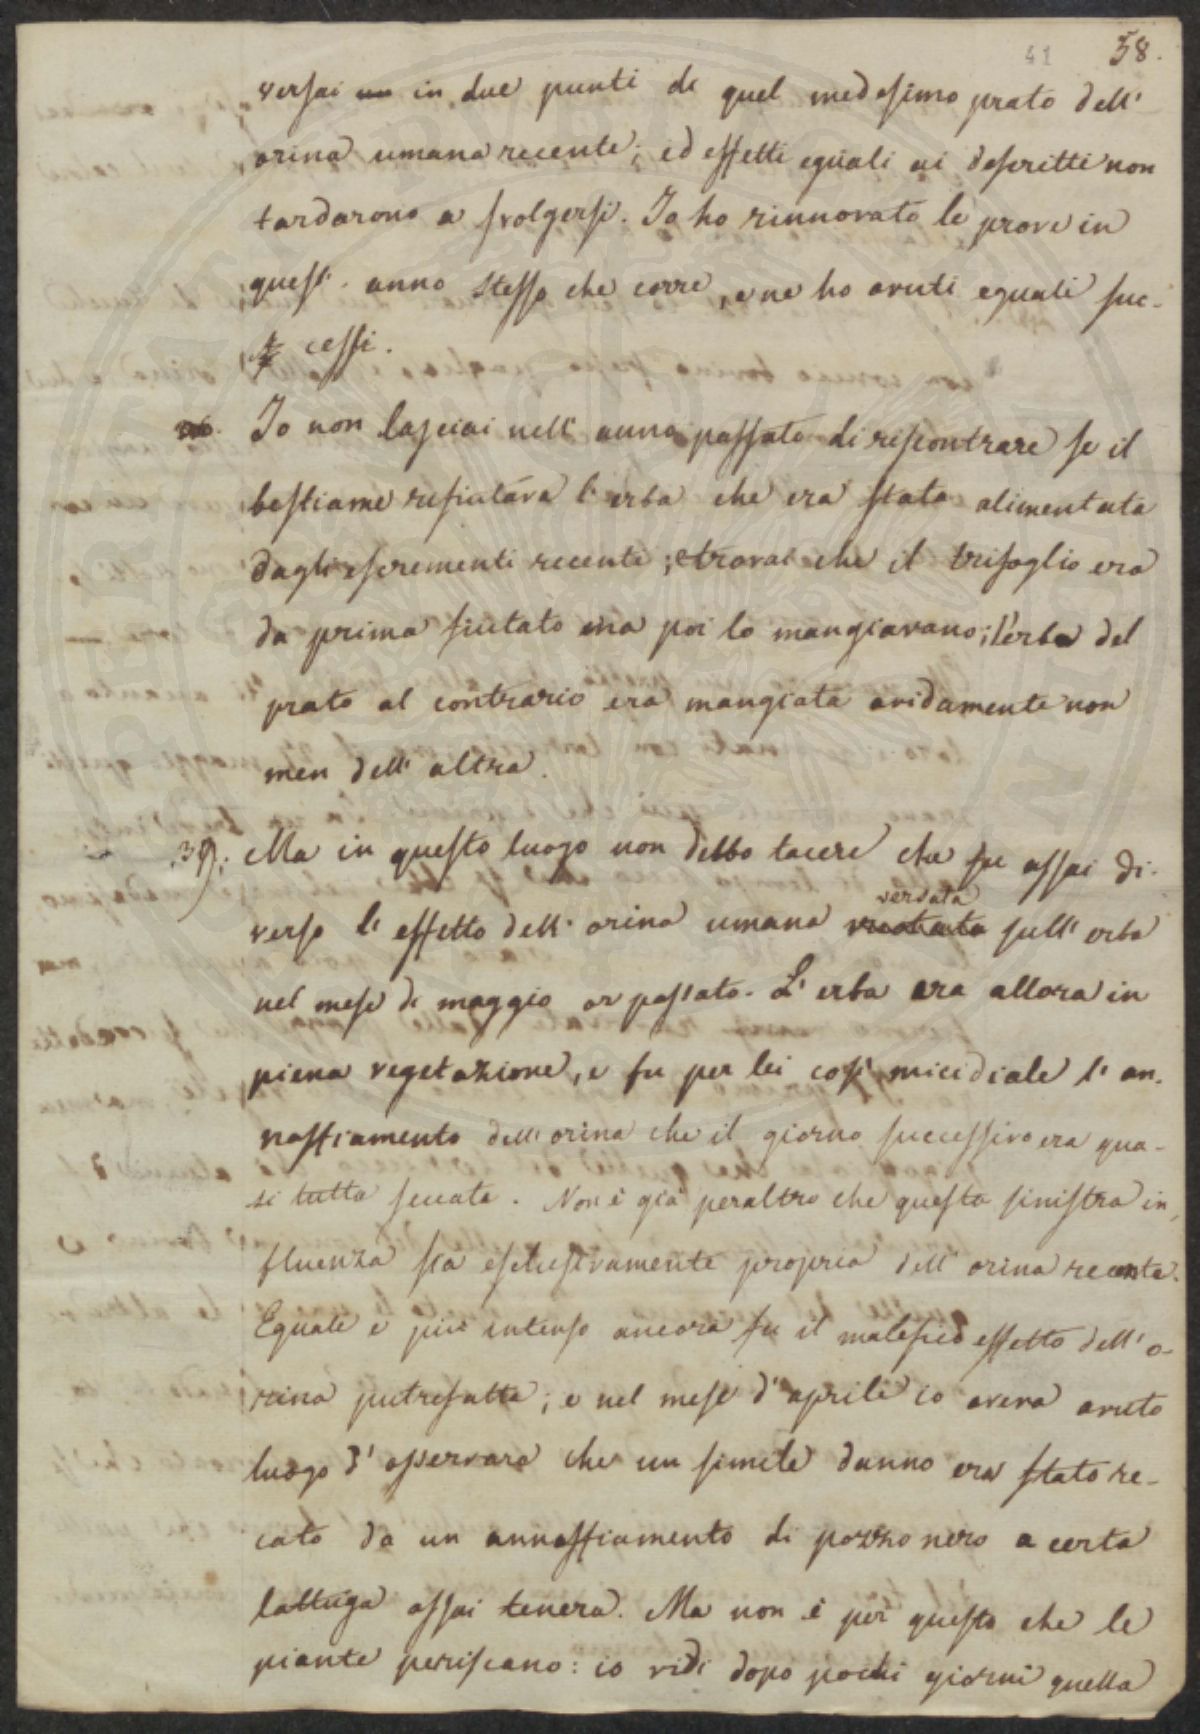 41 38.
versai un in due punti di quel medesimo prato dell'
orina umana recente; ed effetti eguali ai descritti non
tardarono a svolgersi. Io ho rinnovato le prove in
quest' anno stesso che corre, e ne ho avuti eguali suc-
cessi.
Io non lasciai nell' anno passato di riscontrare se il
bestiame rifiutava l' erba che era stata alimentata
dagli escrementi recenti; e trovai che il trifoglio era
da prima fiutato ma poi lo mangiavano; l'erba del
prato al contrario era mangiata avidamente non
men dell' altra.
39). Ma in questo luogo non debbo tacere che fu assai di-
versata
verso l' effetto dell' orina umana vuotata sull' erba
nel mese di maggio or passato. L' erba era allora in
piena vegetazione, e fu per lei così micidiale l' an-
naffiamento dell' orina che il giorno successivo era qua-
si tutta seccata. Non è già peraltro che questa sinistra in-
fluenza sia esclusivamente propria dell' orina recente.
Eguale e più intenso ancora fu il malefico effetto dell' o-
rina putrefatta; e nel mese d' aprile io aveva avuto
luogo d' osservare che un simile danno era stato re-
cato da un annaffiamento di pozzo nero a certa
lattuga assai tenera. Ma non è per questo che le
piante periscano: io vidi dopo pochi giorni quella